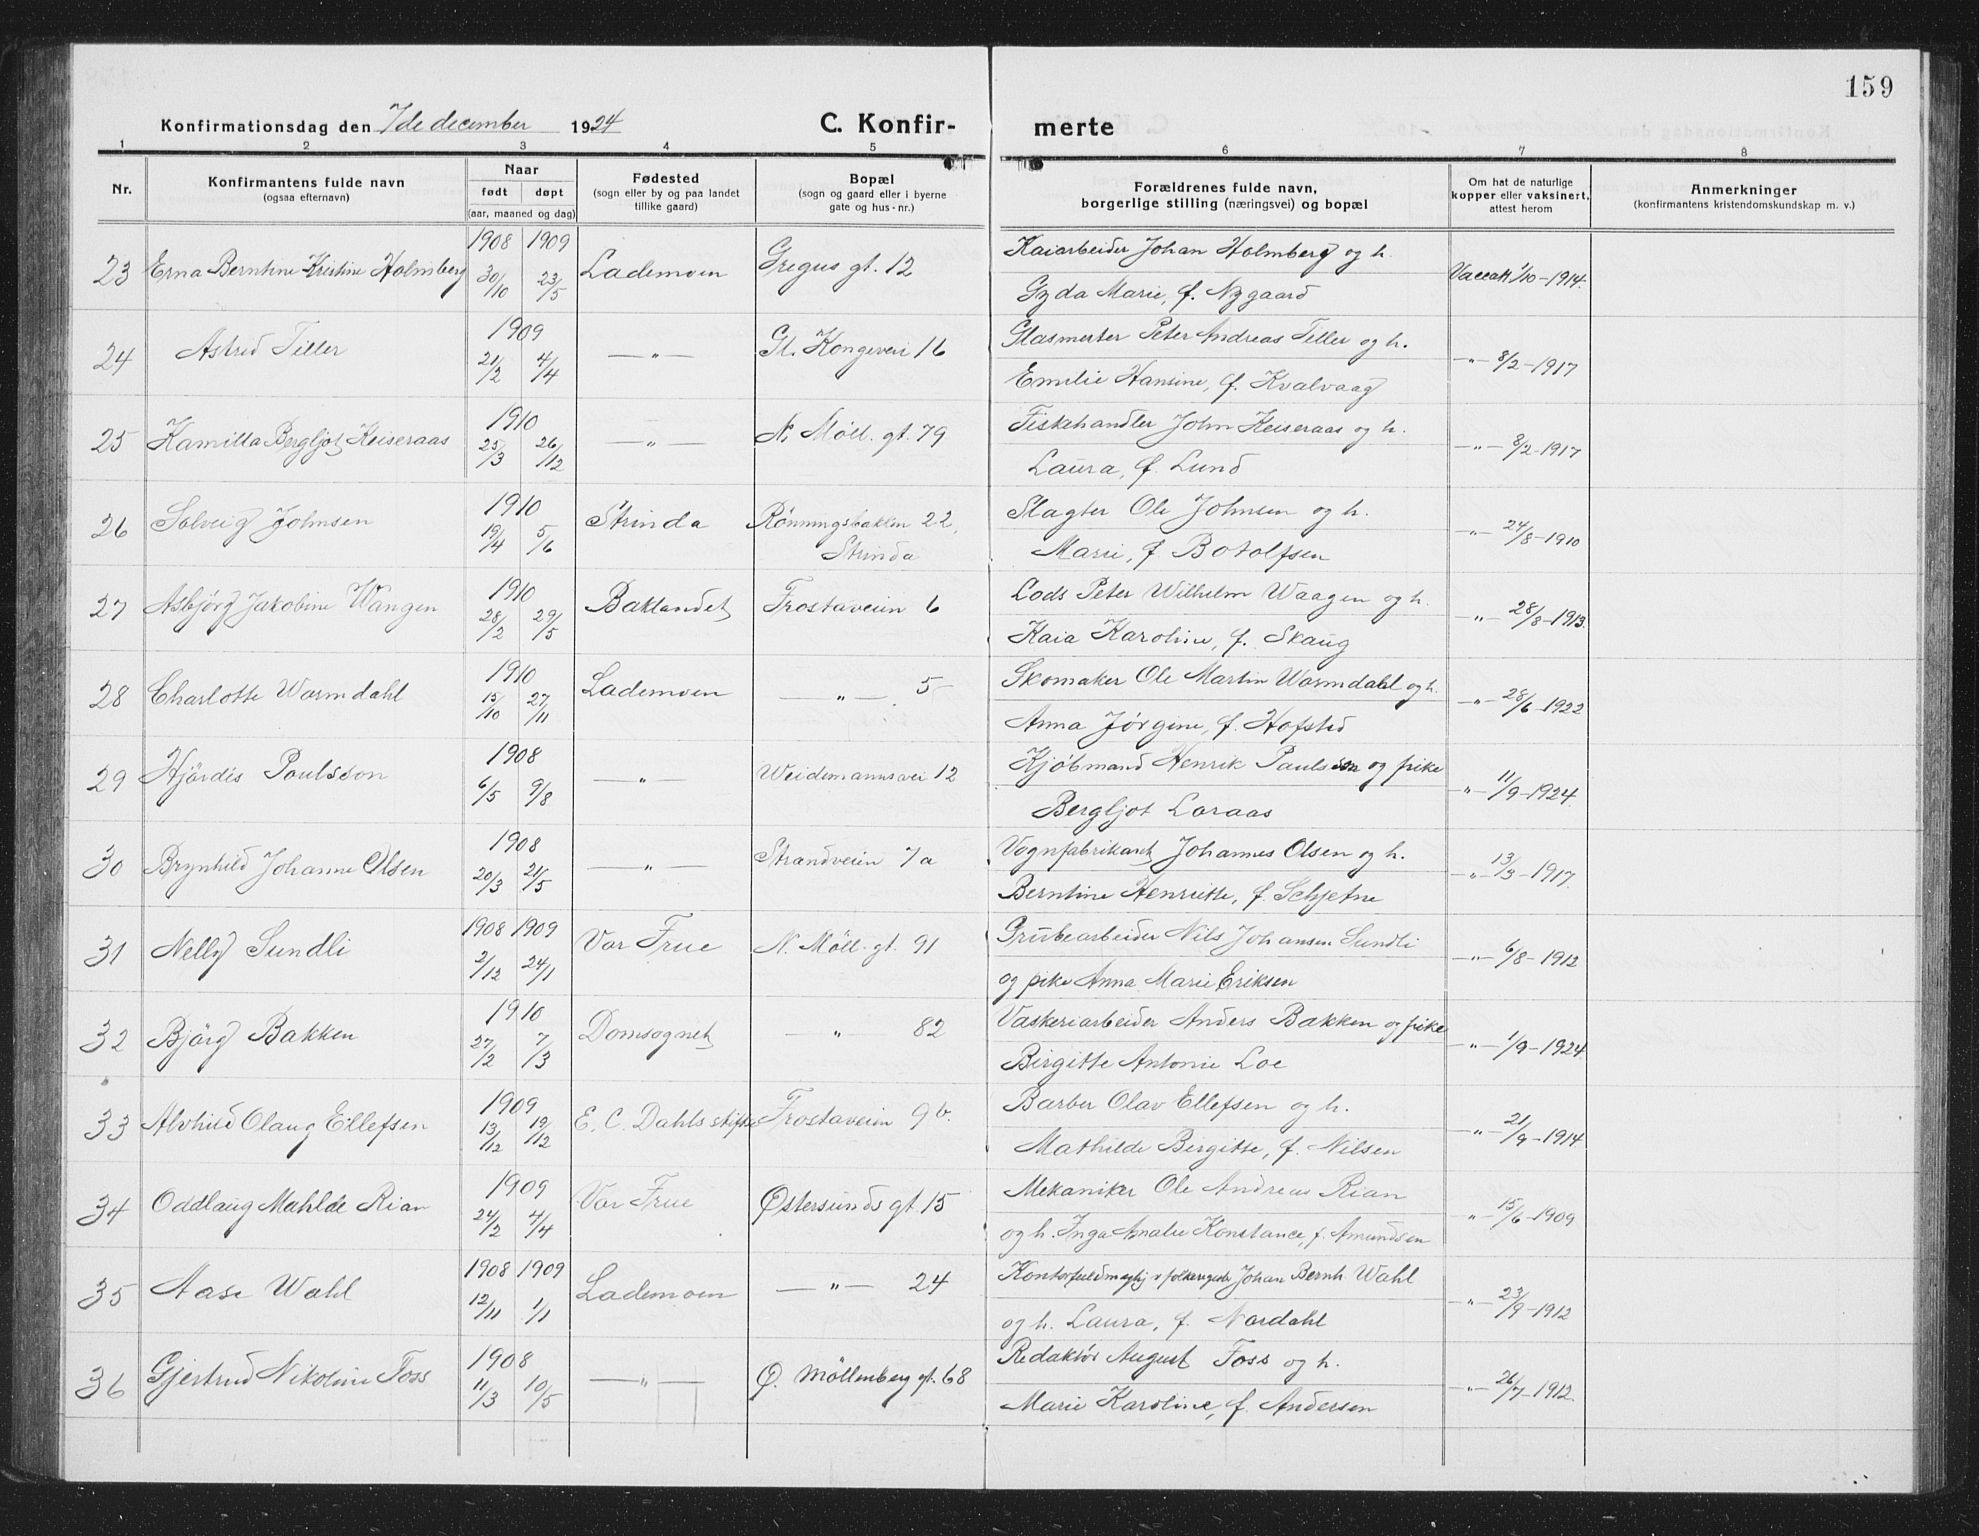 159
Konfirmationsdag den 7de december 1924 C. Konfir- merte
1 2 3 4 5 6 7 8
Nr. Konfirmantens fulde navn (ogsaa efternavn)
Naar født døpt (aar, maaned og dag)
Fødested (sogn eller by og paa landet tillike gaard)
Bopæl (sogn og gaard eller i byerne gate og hus-nr.)
Forældrenes fulde navn, borgerlige stilling (næringsvei) og bopæl
Om hat de naturlige kopper eller vaksinert, attest herom
Anmerkninger (konfirmantens kristendomskundskap m. v.)
23 Erna Berntine Kristine Holmberg 1908 30/10 1909 23/5 Lademoen Gregus gt. 12 Kaiarbeider Johan Holmberg og h. Vaccatt 1/10-1914.
Gyda Marie, f. Nygaard
24 Astrid Tiller 1909 21/2 4/4 —"— Gl. Kongevei 16 Glasmester Peter Andreas Tiller og h. —"— 8/2-1917
Emilie Hansine, f. Kvalvaag
25 Kamilla Bergljot Keiseraas 1910 25/3 26/12 —"— N. Möll. gt. 79 Fiskehandler John Keiseraas og h. —"— 8/2-1917
Laura, f. Lund
26 Solveig Johnsen 1910 19/4 5/6 Strinda Rönningsbakken 22, Strinda Slagter Ole Johnsen og h. —"— 24/8-1910
Marie, f Botolfsen
27 Asbjörg Jakobine Wangen 1910 28/2 29/5 Baklandet Frostaveien 6 Lods Peter Wilhelm Waagen og h. —"— 28/8-1913.
Kaia Karoline, f. Skaug
28 Charlotte Warmdahl 1910 15/10 27/11 Lademoen —"— 5 Skomaker Ole Martin Warmdahl og h. —"— 28/6-1922
Anna Jørgine, f. Hofstad
29 Hjördis Poulsson 1908 6/5 9/8 —"— Weidemannsvei 12 Kjøbmand Henrik Paulsson og pike —"— 11/9-1924.
Bergljot Loraas
30 Brynhild Johanne Olsen 1908 20/3 21/5 —"— Strandveien 7a Vognfabrikant Johannes Olsen og h. —"— 13/3-1917.
Berntine Henriette, f. Schjetne
31 Nelly Sundli 1908 2/12 1909 24/1 Vor Frue N. Möll. gt. 91 Grubearbeider Nils Johansen Sundli —"— 6/8-1912
og pike Anna Marie Eriksen
32 Bjørg Bakken 1910 27/2 7/3 Domsognet —"— 82 Vaskeriarbeider Anders Bakken og pike —"— 1/9-1924
Birgitte Antonie Loe
33 Alvhild Olaug Ellefsen 1909 13/12 19/12 E. C. Dahls stiftelse Frostaveien 9b. Barber Olav Ellefsen og h. —"— 21/9-1914
Mathilde Birgitte, f. Nilsen
34 Oddlaug Mahlde Rian 1909 24/2 4/4 Vor Frue Østersunds gt. 15 Mekaniker Ole Andreas Rian —"— 15/6-1909
og h. Inga Amalie Konstance, f. Amundsen
35 Aase Wahl 1908 12/11 1909 1/1 Lademoen —"— 24 Johan Bernh. Wahl —"— 23/9-1912
og h. Laura, f. Nordahl
36 Gjertrud Nikoline Foss 1908 11/3 10/5 —"— Ø. Möllenberg gt. 68 Redaktör August Foss og h. —"— 26/7-1912.
Marie Karoline, f. Andersen